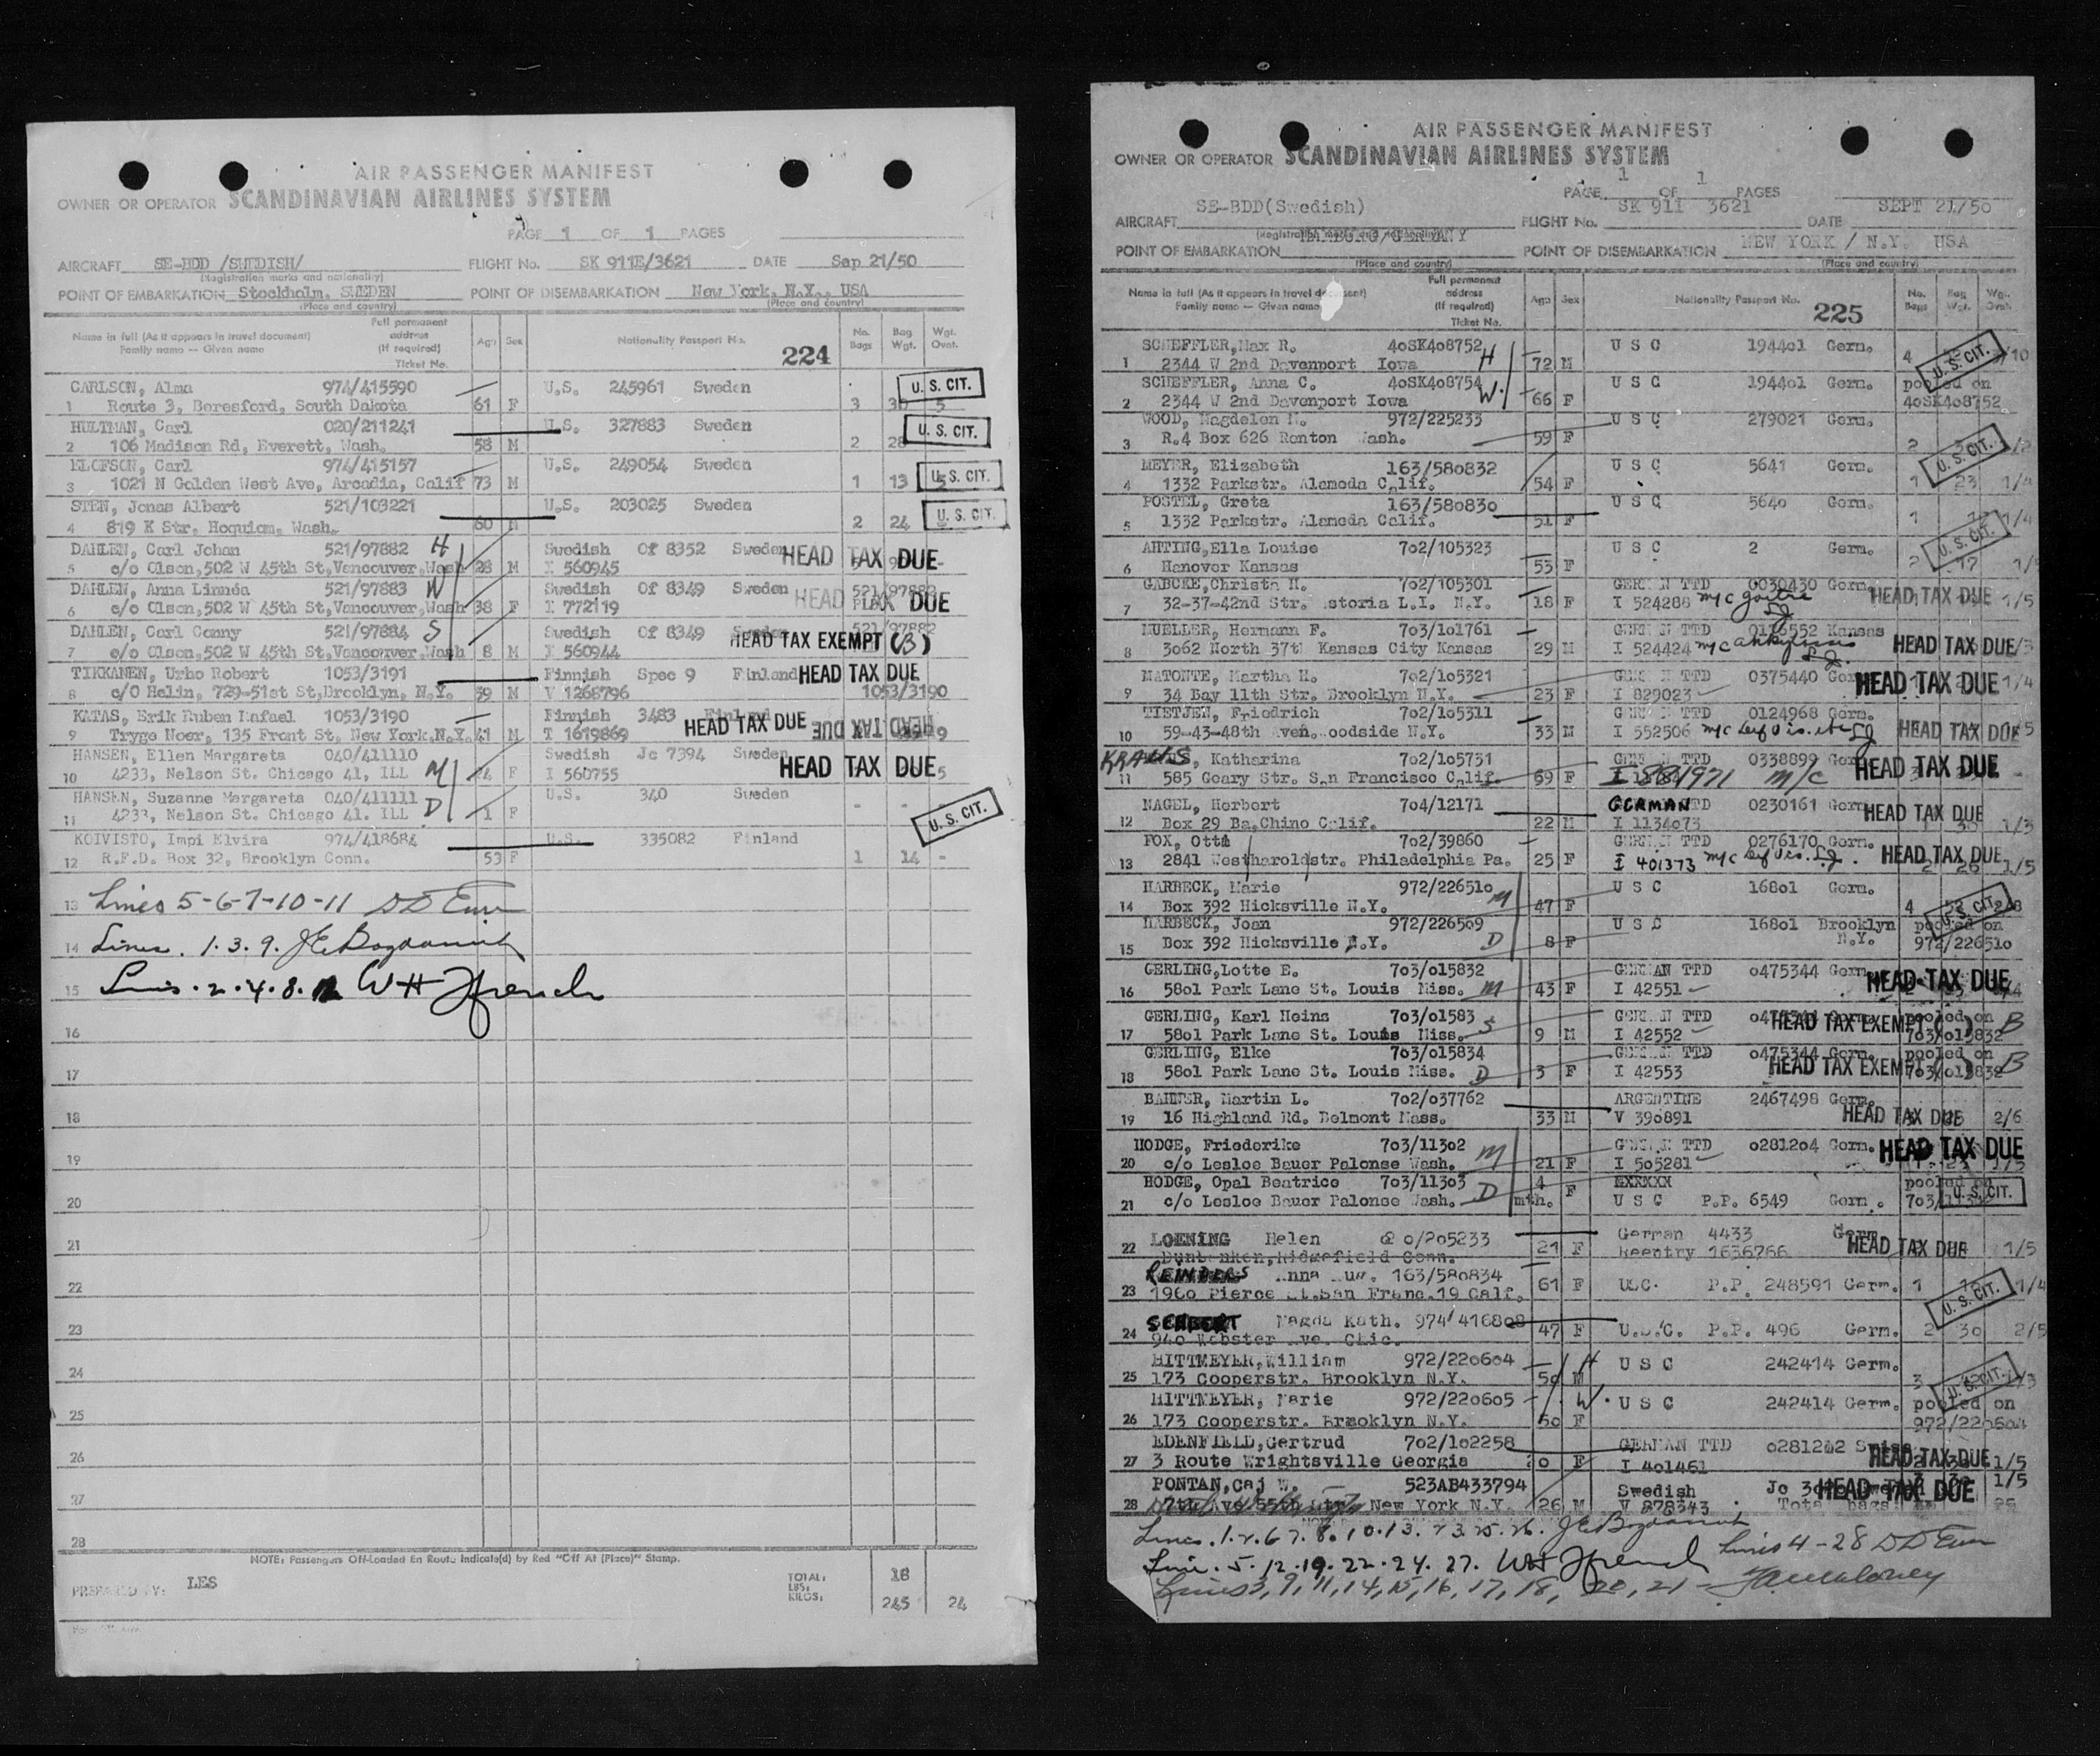 AIR PASSENGER MANIFEST
OWNER OR OPERATOR SCANDINAVIAN AIRLINES SYSTEM
PAGE 1 OF 1 PAGES
AIRCRAFT SE-BDD /SWEDISH/ FLIGHT No. SK 911E/3621 DATE Sep 21/50
(Registration marks and nationality)
POINT OF EMBARKATION Stockholm, SWEDEN POINT OF DISEMBARKATION New York, N.Y., USA
(Place and country) (Place and country)
Name in full (As it appears in travel document) Family name — Given name Full permanent address (If required) Ticket No. Age Sex Nationality Passport No. 224 No. Bags Bag Wgt. Wgt. Ovat.
CARLSON, Alma 974/415590 U.S. 245961 Sweden U. S. CIT.
1 Route 3, Beresford, South Dakota 61 F 3 30 5
HULTMAN, Carl 020/211241 U.S. 327883 Sweden U. S. CIT.
2 106 Madison Rd, Everett, Wash. 58 M 2 28
ELOFSON, Carl 974/415157 U.S. 249054 Sweden
3 1021 N Golden West Ave, Arcadia, Calif 73 M 1 13 U. S. CIT.
STEN, Jonas Albert 521/103221 U.S. 203025 Sweden
4 819 K Str. Hoquiam, Wash. 60 M 2 24 U. S. CIT.
DAHLEN, Carl Johan 521/97882 H Swedish Of 8352 Sweden HEAD TAX DUE
5 c/o Olson,502 W 45th St,Vancouver,Wash 28 M I 560945
DAHLEN, Anna Linnéa 521/97883 W Swedish Of 8349 Sweden 521/97882 HEAD TAX DUE
6 c/o Olson,502 W 45th St,Vancouver,Wash 38 F I 772119
DAHLEN, Carl Conny 521/97884 S Swedish Of 8349 Sweden 521/97882 HEAD TAX EXEMPT (B)
7 c/o Olson,502 W 45th St,Vancouver,Wash 8 M I 560944
TIKKANEN, Urho Robert 1053/3191 Finnish Spec 9 Finland HEAD TAX DUE
8 c/O Helin, 729-51st St,Brooklyn, N.Y. 39 M V 1268796 1053/3190
KATAS, Erik Ruben Rafael 1053/3190 Finnish 3483 Finland HEAD TAX DUE HEAD TAX DUE
9 Trygg Noer, 135 Front St, New York,N.Y. 41 M T 1619869
HANSEN, Ellen Margareta 040/411110 Swedish Jc 7394 Sweden HEAD TAX DUE
10 4233, Nelson St. Chicago 41, ILL M F I 560755
HANSEN, Suzanne Margareta 040/411111 U.S. 340 Sweden
11 4233, Nelson St. Chicago 41. ILL D 1 F U. S. CIT.
KOIVISTO, Impi Elvira 974/418684 U.S. 335082 Finland
12 R.F.D. Box 32, Brooklyn Conn. 53 F 1 14 -
13 Lines 5-6-7-10-11
14 Lines. 1.3.9.
15 Lines. 2.4.8. WH French
16
17
18
19
20
21
22
23
24
25
26
27
28
NOTE: Passengers Off-Loaded En Route Indicate(d) by Red "Off At (Place)" Stamp.
PREPARED BY: LES TOTAL: 18
LBS:
KILOS: 245 24
AIR PASSENGER MANIFEST
OWNER OR OPERATOR SCANDINAVIAN AIRLINES SYSTEM
PAGE 1 OF 1 PAGES
AIRCRAFT SE-BDD(Swedish) FLIGHT No. SK 911 3621 DATE SEPT 21/50
POINT OF EMBARKATION HAMBURG/GERMANY POINT OF DISEMBARKATION NEW YORK / N.Y. USA
(Place and country) (Place and country)
Name in full (As it appears in travel document) Family name — Given name Full permanent address (If required) Ticket No. Age Sex Nationality Passport No. 225 No. Bags Bag Wgt. Wgt. Ovat.
SCHEFFLER,Max R. 40SK408752 H U S C 194401 Germ. 4 U. S. CIT.
1 2344 W 2nd Davenport Iowa 72 M
SCHEFFLER, Anna C. 40SK408754 W. U S C 194401 Germ. pooled on
2 2344 W 2nd Davenport Iowa 66 F 40SK408752
WOOD, Magdelen M. 972/225233 U S C 279021 Germ.
3 R.4 Box 626 Renton Wash. 59 F 2 U. S. CIT.
MEYER, Elizabeth 163/580832 U S C 5641 Germ.
4 1332 Parkstr. Alameda Calif. 54 F 1 23 1/4
POSTEL, Greta 163/580830 U S C 5640 Germ.
5 1332 Parkstr. Alameda Calif. 51 F 1 1/4
AHTING,Ella Louise 702/105323 U S C 2 Germ. U. S. CIT.
6 Hanover Kansas 53 F 2 17
GABCKE,Christa H. 702/105301 GERMAN TTD 0030430 Germ. HEAD TAX DUE
7 32-37-42nd Str. Astoria L.I. N.Y. 18 F I 524288 1/5
MUELLER, Hermann F. 703/101761 GERMAN TTD 0176552 Kansas
8 3062 North 37th Kansas City Kansas 29 M I 524424 HEAD TAX DUE
MATONTE, Martha H. 702/105321 GERMAN TTD 0375440 Germ. HEAD TAX DUE
9 34 Bay 11th Str. Brooklyn N.Y. 23 F I 829023 1/4
TIETJEN, Friedrich 702/105311 GERMAN TTD 0124968 Germ.
10 59-43-48th Aven. Woodside N.Y. 33 M I 552506 HEAD TAX DUE
KRAUS, Katharina 702/105731 GERMAN TTD 0338899 Germ. HEAD TAX DUE
11 585 Geary Str. San Francisco Calif. 69 F I 881971 M/C
NAGEL, Herbert 704/12171 GERMAN TTD 0230161 Germ. HEAD TAX DUE
12 Box 29 Ba,Chino Calif. 22 M I 1134073 1/3
FOX, Otto 702/39860 GERMAN TTD 0276170 Germ. HEAD TAX DUE
13 2841 Westharoldstr. Philadelphia Pa. 25 F I 401373 1/5
HARBECK, Marie 972/226510 M U S C 16801 Germ.
14 Box 392 Hicksville N.Y. 47 F 4 U. S. CIT.
HARBECK, Joan 972/226509 U S C 16801 Brooklyn pooled on
15 Box 392 Hicksville N.Y. D 8 F N.Y. 972/226510
GERLING,Lotte E. 703/015832 GERMAN TTD 0475344 Germ. HEAD TAX DUE
16 5801 Park Lane St. Louis Miss. M 43 F I 42551
GERLING, Karl Heinz 703/01583 S GERMAN TTD 0475344 Germ. pooled on HEAD TAX EXEMPT ( ) B
17 5801 Park Lane St. Louis Miss. 9 M I 42552 703/015832
GERLING, Elke 703/015834 GERMAN TTD 0475344 Germ. pooled on HEAD TAX EXEMPT ( ) B
18 5801 Park Lane St. Louis Miss. D 3 F I 42553 703/015832
BAHNER, Martin L. 702/037762 ARGENTINE 2467498 Germ.
19 16 Highland Rd. Belmont Mass. 33 M V 390891 HEAD TAX DUE 2/6
HODGE, Friederike 703/11302 M GERMAN TTD 0281204 Germ. HEAD TAX DUE
20 c/o Lesloe Bauer Palonse Wash. 21 F I 505281
HODGE, Opal Beatrice 703/11303 D 4 F pooled on
21 c/o Lesloe Bauer Palonse Wash. mth. U S C P.P. 6549 Germ. U. S. CIT.
LOENING Helen /205233 German 4433 Germ
22 Ridgefield Conn. 21 F Reentry 1636766 HEAD TAX DUE 1/5
REINDERS Anna 163/580834 61 F U.S.C. P.P. 248591 Germ. 1 1/4
23 1960 Pierce St.San Franc.19 Calf. U. S. CIT.
Magda Kath. 974/416808 47 F U.S.C. P.P. 496 Germ. 2 30 2/5
24 940 Webster Ave. Chic.
HITTMEYER,William 972/220604 H U S C 242414 Germ.
25 173 Cooperstr. Brooklyn N.Y. 50 M 3 U. S. CIT.
HITTMEYER, Marie 972/220605 W. U S C 242414 Germ. pooled on
26 173 Cooperstr. Brooklyn N.Y. 50 F 972/220604
EDENFIELD,Gertrud 702/102258 GERMAN TTD
27 3 Route Wrightsville Georgia F I 401461 HEAD TAX DUE 1/5
PONTAN,Caj W. 523AB433794 Swedish HEAD TAX DUE 1/5
28 7th Ave 55th Str. New York N.Y. 26 M V 878343 Total bags
Lines. 1.2.6.7.8.10.13.23.25.26.
Lines 4-28
Line. 5.12.19.22.24.27. WH French
Lines 3, 9, 11, 14, 15, 16, 17, 18, 20, 21